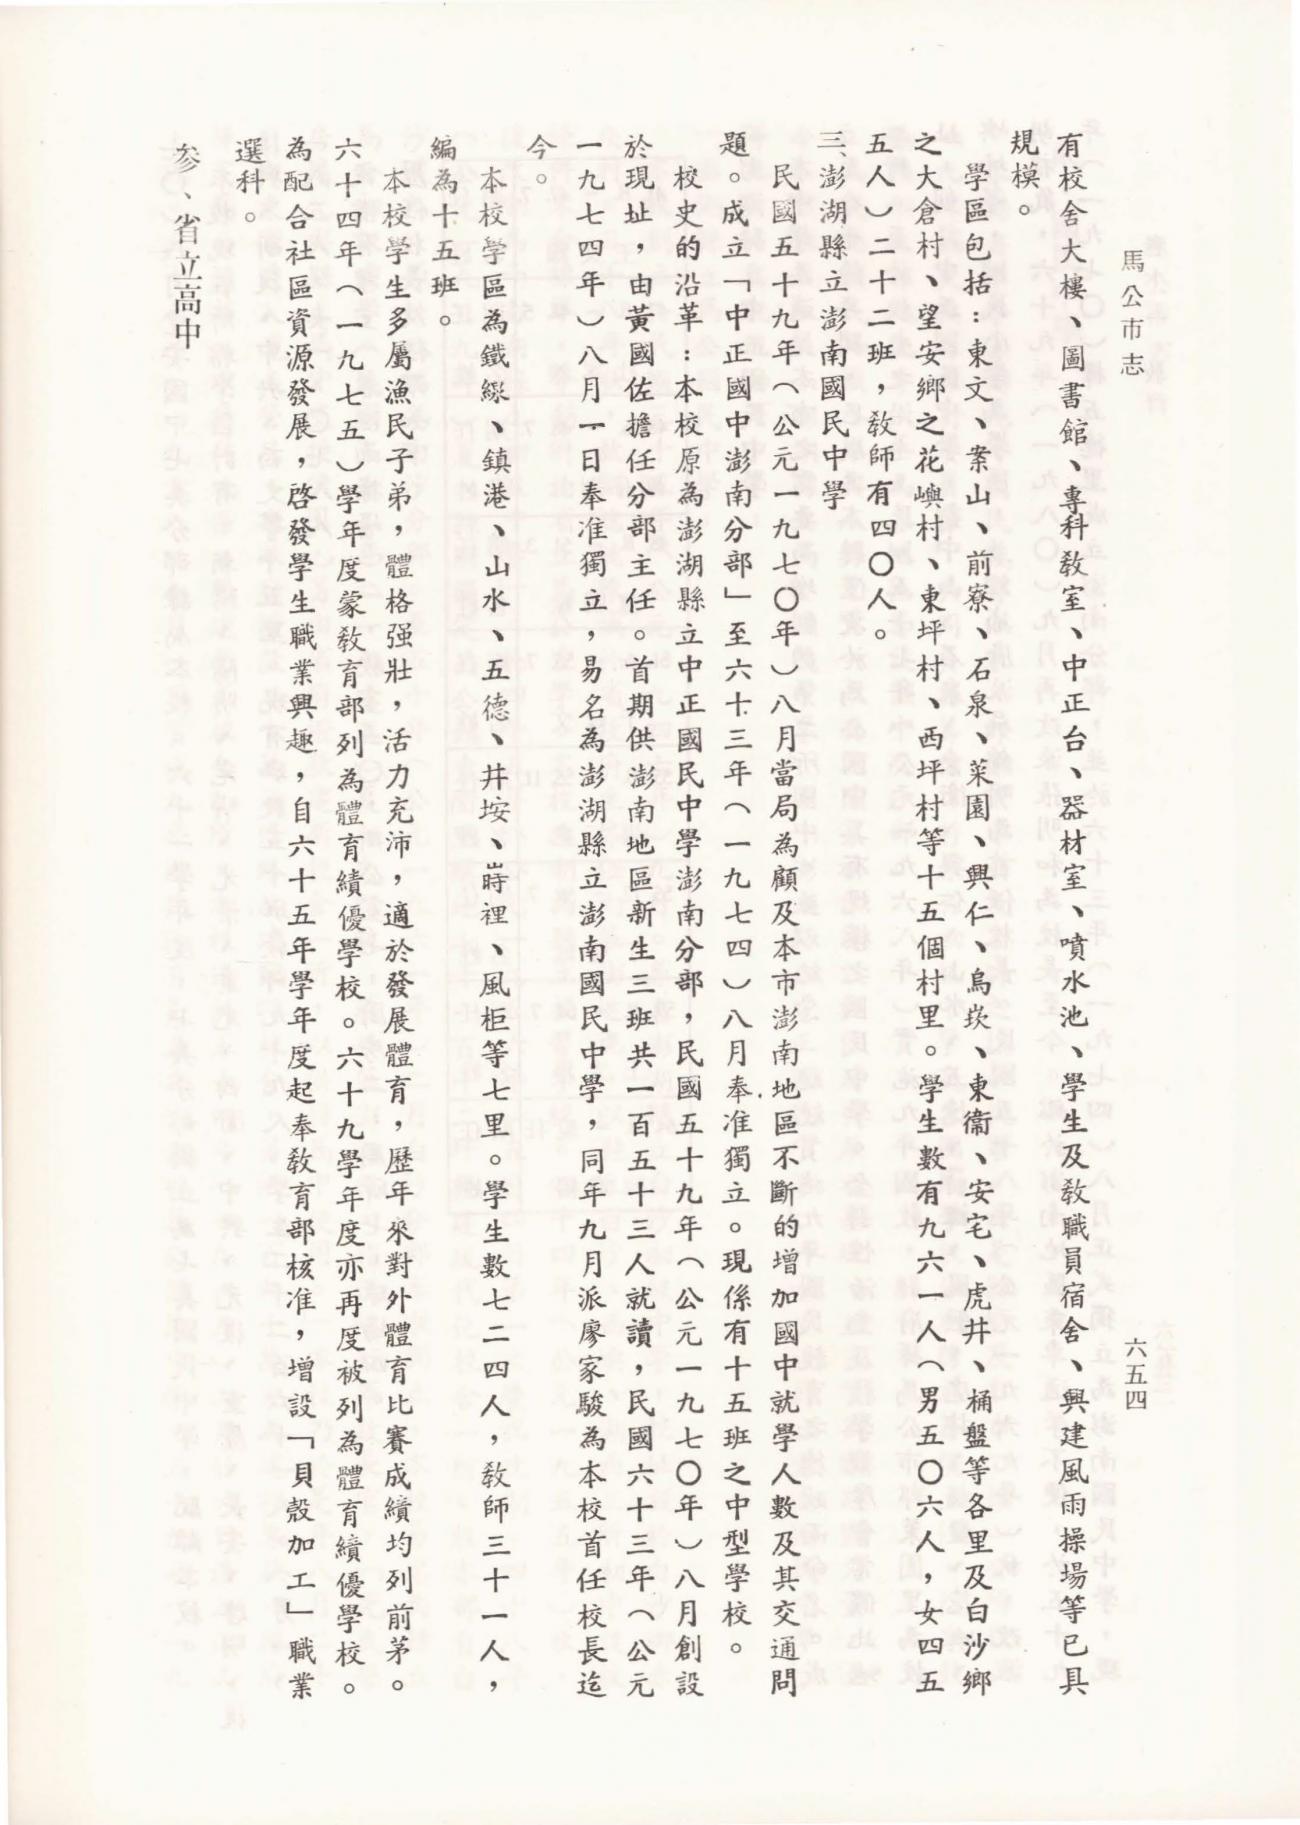 馬公市志
六五四
有校舍大樓、圖書館、專科教室、中正台、器材室、噴水池、學生及教職員宿舍、興建風雨操場等已具
規模。
學區包括：東文、案山、前寮、石泉、菜園、興仁、烏崁、東衞、安宅、虎井、桶盤等各里及白沙鄉
之大倉村、望安鄉之花嶼村、東坪村、西坪村等十五個村里。學生數有九六一人（男五〇六人，女四五
五人）二十二班，教師有四〇人。
三、澎湖縣立澎南國民中學
民國五十九年（公元一九七〇年）八月當局為顧及本市澎南地區不斷的增加國中就學人數及其交通問
題。成立「中正國中澎南分部」至六十三年（一九七四）八月奉准獨立。現係有十五班之中型學校。
校史的沿革：本校原為澎湖縣立中正國民中學澎南分部，民國五十九年（公元一九七〇年）八月創設
於現址，由黃國佐擔任分部主任。首期供澎南地區新生三班共一百五十三人就讀，民國六十三年（公元
一九七四年）八月一日奉准獨立，易名為澎湖縣立澎南國民中學，同年九月派廖家駿為本校首任校長迄
今。
本校學區為鐵線、鎮港、山水、五德、井垵、嵵裡、風柜等七里。學生數七二四人，教師三十一人，
編為十五班。
本校學生多屬漁民子弟，體格强壯，活力充沛，適於發展體育，歷年來對外體育比賽成績均列前茅。
六十四年（一九七五）學年度蒙教育部列為體育績優學校。六十九學年度亦再度被列為體育績優學校。
為配合社區資源發展，啓發學生職業興趣，自六十五年學年度起奉教育部核准，增設「貝殼加工」職業
選科。
參、省立高中